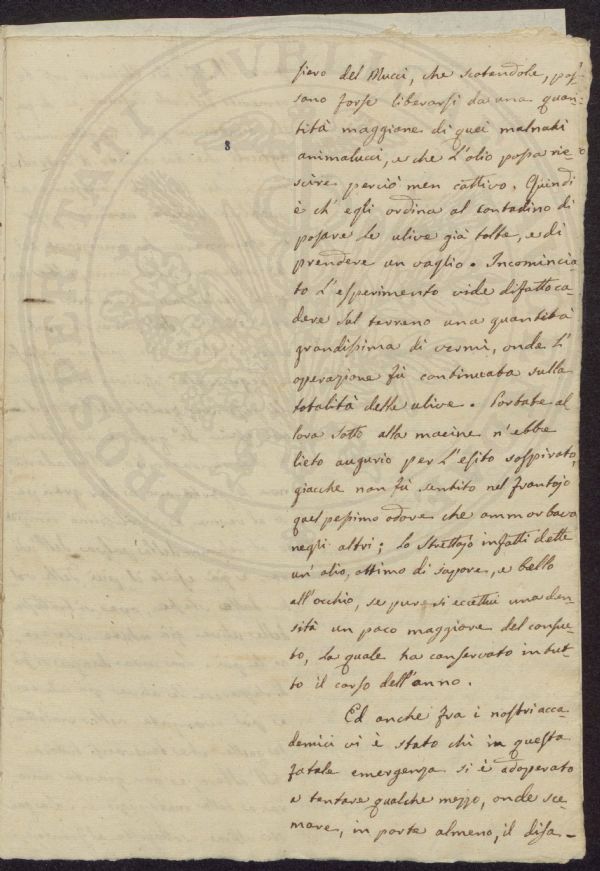 siero del Mucci, che scotendole, pos-
sano forse liberarsi da una quan-
tità maggiore di quei malnati
animalucci, e che l'olio possa rie-
scire perciò men cattivo. Quindi
è ch'egli ordina al contadino di
posare le ulive già tolte, e di
prendere un vaglio. Incomincia-
to l'esperimento vide difatto ca-
dere sul terreno una quantità
grandissima di vermi, onde l'
operazione fù continuata sulla
totalità delle ulive. Portate al
lora sotto alla macine n'ebbe
lieto augurio per l'esito sospirato,
giacche non fù sentito nel frantojo
quel pessimo odore che ammorbava
negli altri; lo strettojo infatti dette
un'olio, ottimo di sapore, e bello
all'occhio, se pure si eccettui una den-
sità un poco maggiore del consue-
to, la quale ha conservato in tut-
to il corso dell'anno.
Ed anche fra i nostri acca-
demici vi è stato chi in questa
fatale emergenza si è adoperato
a tentare qualche mezzo, onde sce-
mare, in parte almeno, il disa-
8
PROSPERITATI PVBLICAE